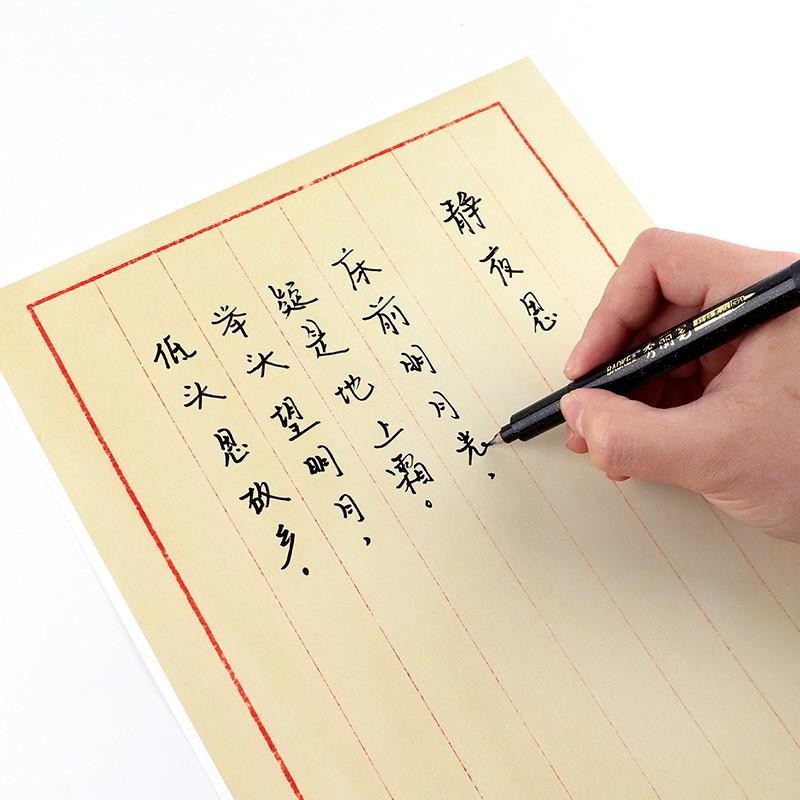 静夜思
床前明月光、
疑是地上霜。
举头望明月、
低头思故乡。
BAOKE 秀丽笔